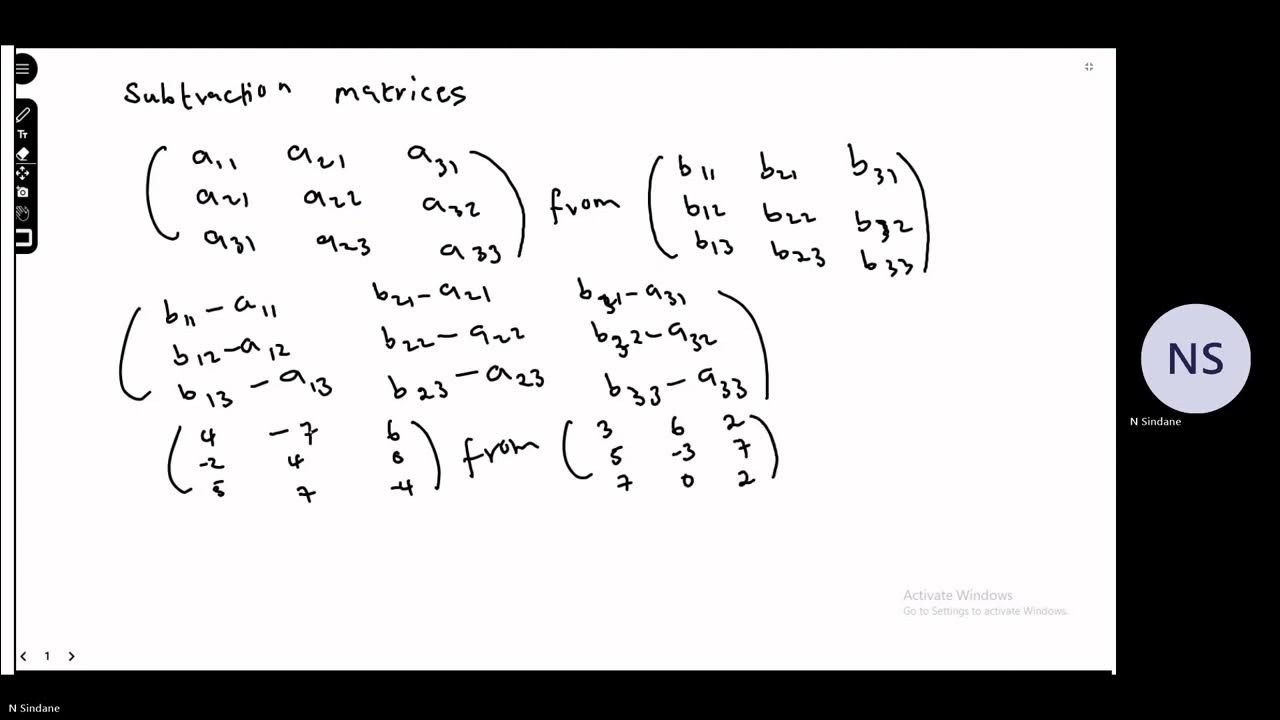 Subtraction matrices
a11 a21 a31 b11 b21 b31
a21 a22 a32 from b12 b22 b32
a31 a23 a33 b13 b23 b33
b11 - a11 b21 - a21 b31 - a31
b12 - a12 b22 - a22 b32 - a32
b13 - a13 b23 - a23 b33 - a33
4 -7 6 3 6 2
-2 4 from 5 -3 7
5 7 -4 7 0 2
NS
N Sindane
Activate Windows
Go to Settings to activate Windows.
1
N Sindane